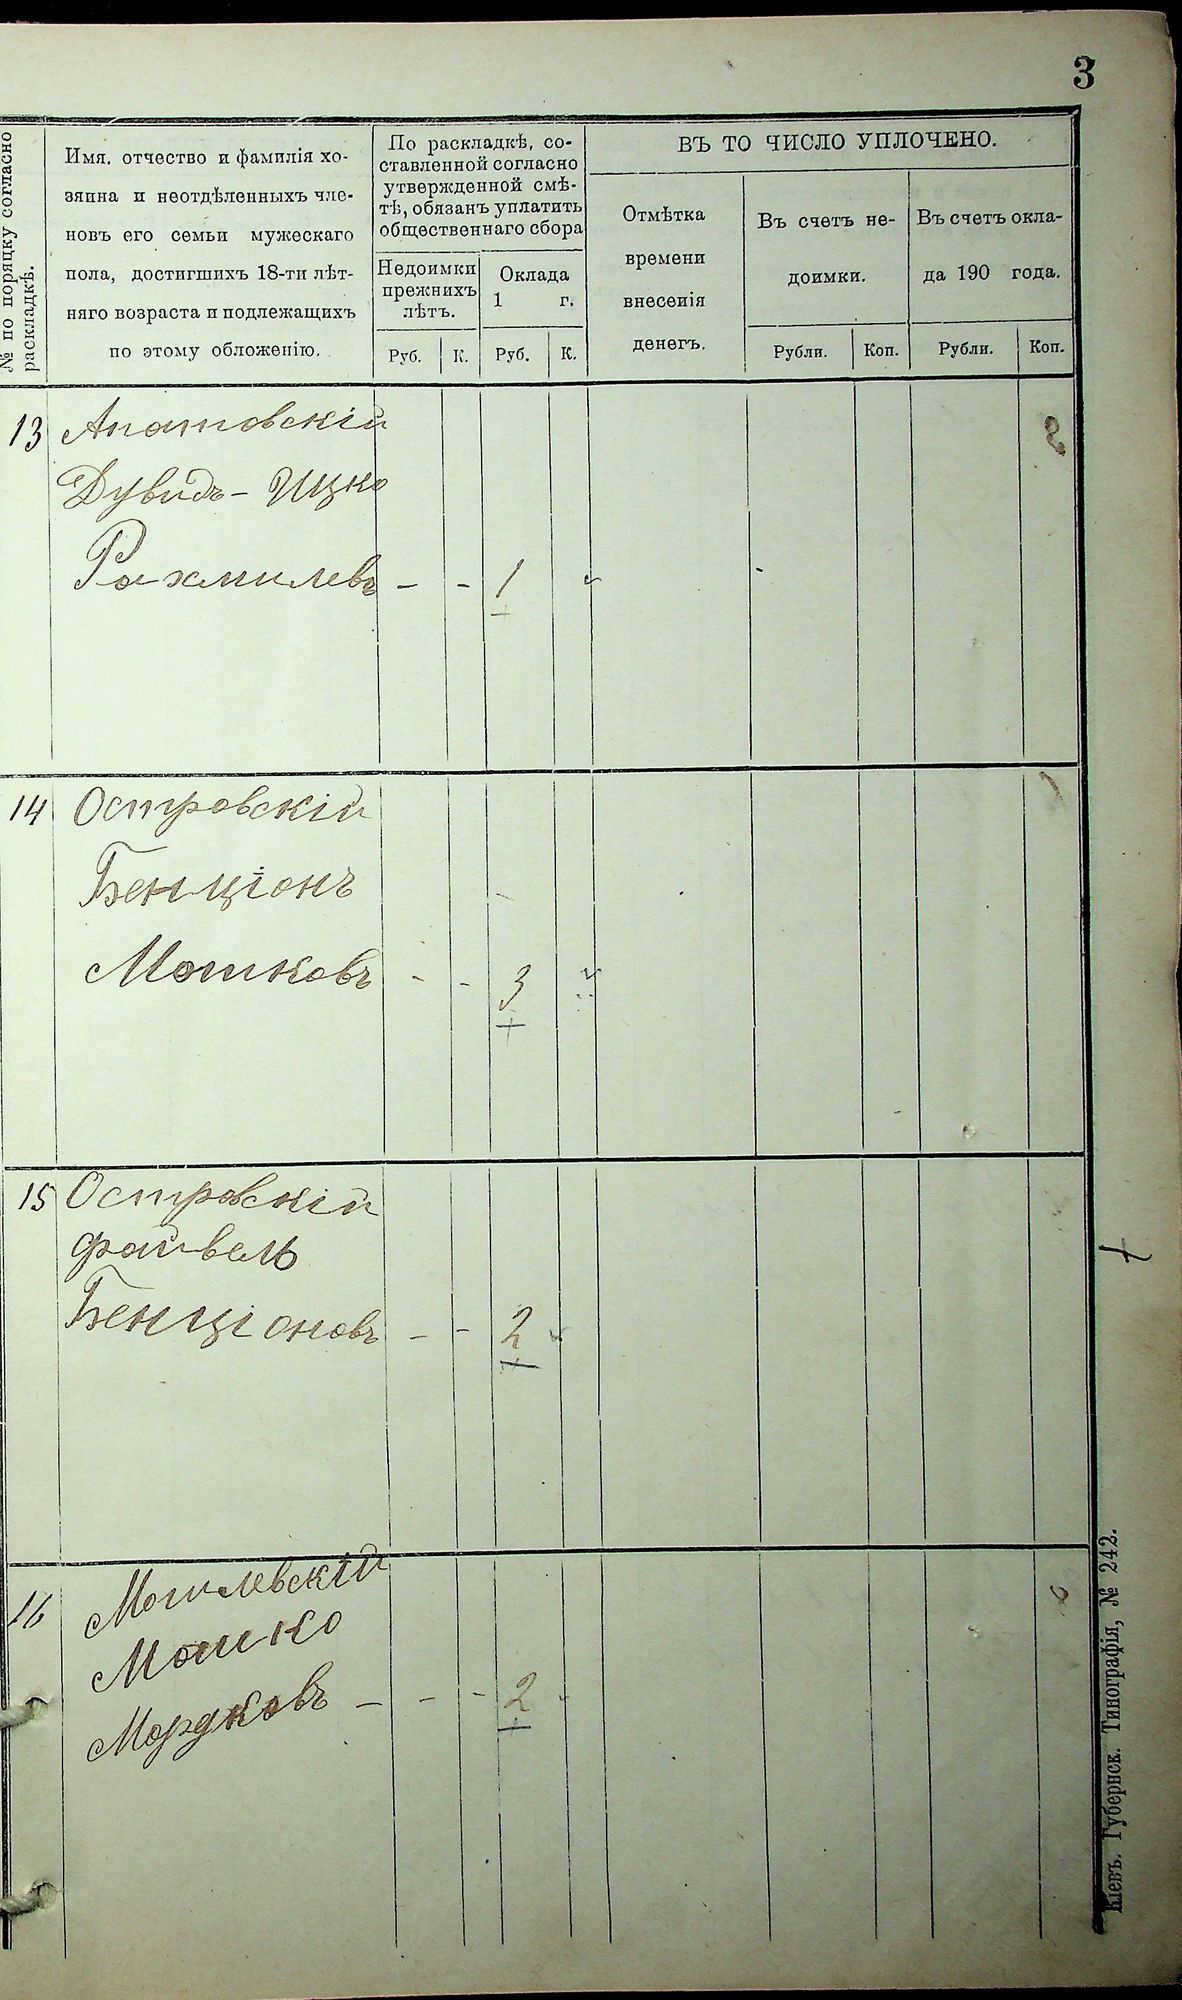 3
№ по поряцку согласно
раскладкѣ.
Имя, отчество и фамилія хо-
зяина и неотдѣленныхъ чле-
новъ его семьи мужескаго
пола, достигшихъ 18-ти лѣт-
няго возраста и подлежащихъ
по этому обложенію.
По раскладкѣ, со-
ставленной согласно
утвержденной смѣ-
тѣ, обязанъ уплатить
общественнаго сбора
Недоимки
прежнихъ
лѣтъ.
Оклада
1 г.
Руб. К. Руб. К.
ВЪ ТО ЧИСЛО УПЛОЧЕНО.
Отмѣтка
времени
внесенія
денегъ.
Въ счетъ не-
доимки.
Рубли. Коп.
Въ счетъ окла-
да 190 года.
Рубли. Коп.
13 Апатовскій
Дувидъ - Ицко
Рахмилевъ - - 1
14 Островскій
Бенціонъ
Мошковъ - - 3
15 Островскій
Файвель
Бенціоновъ - - 2
16 Могилевскій
Мошко
Мордковъ - - - 2
Кіевъ. Губернск. Типографія, № 242.